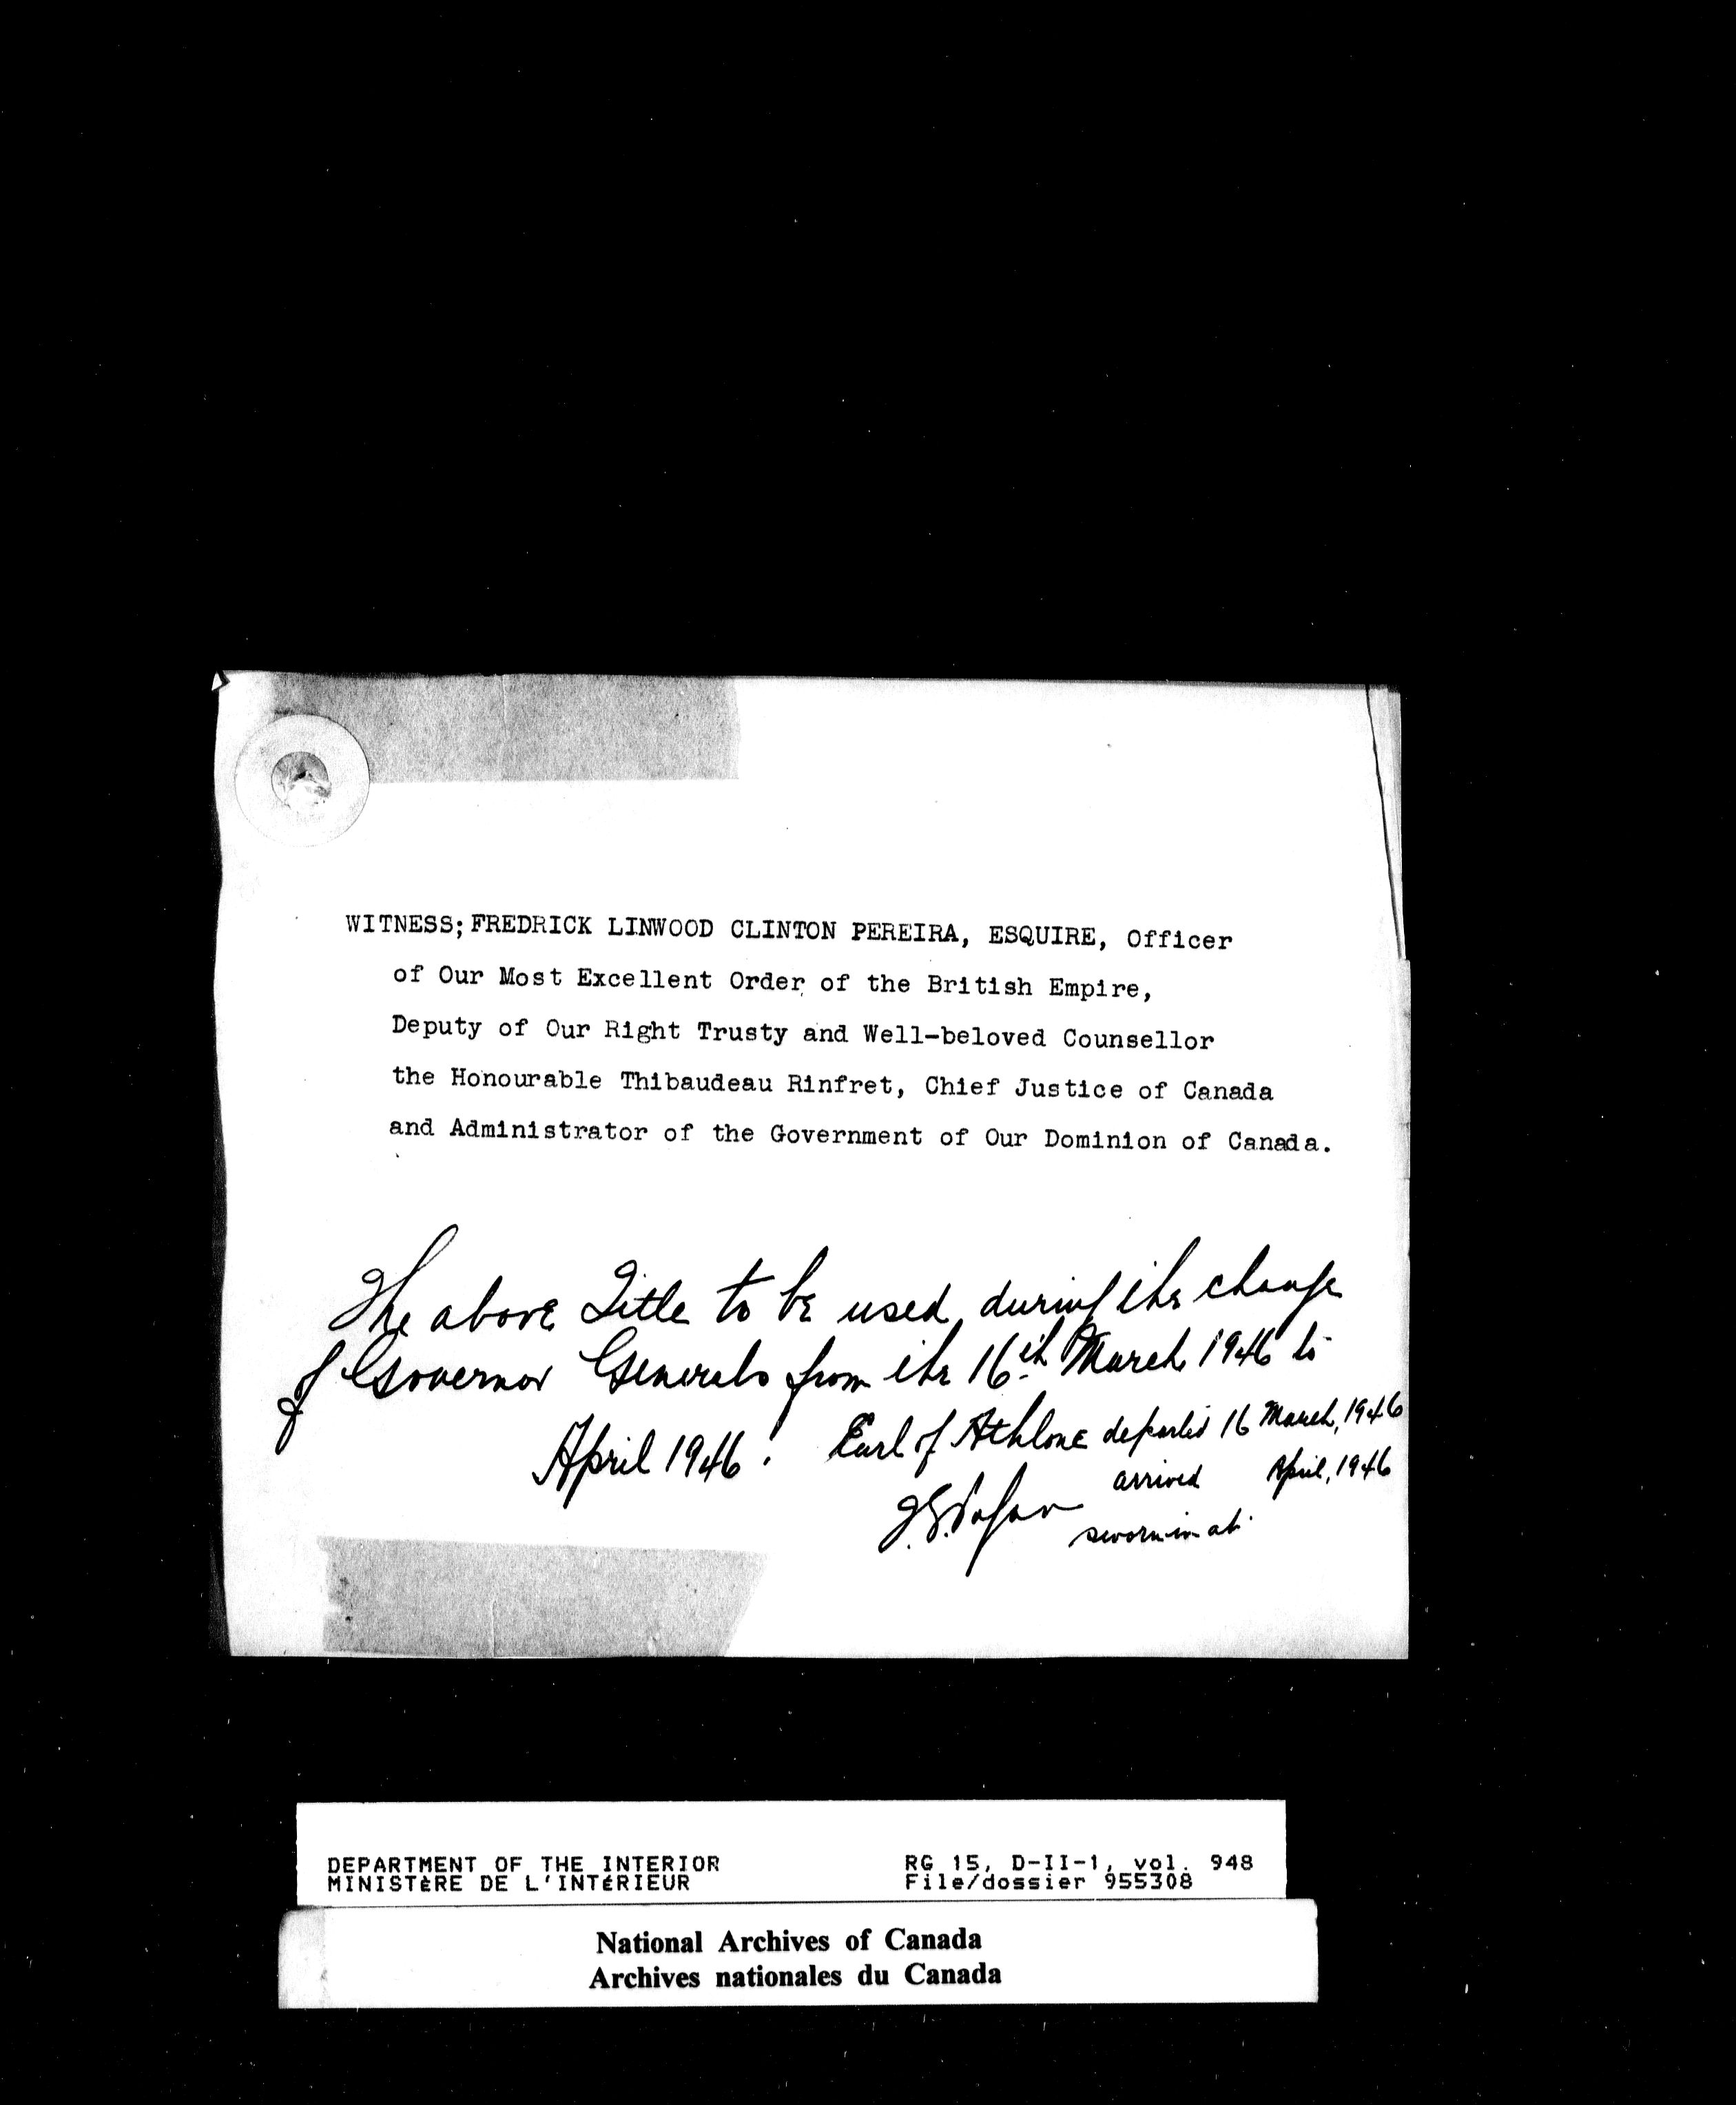 WITNESS; FREDRICK LINWOOD CLINTON PEREIRA, ESQUIRE, Officer
of Our Most Excellent Order of the British Empire,
Deputy of Our Right Trusty and Well-beloved Counsellor
the Honourable Thibaudeau Rinfret, Chief Justice of Canada
and Administrator of the Government of Our Dominion of Canada.
The above Title to be used during the change
of Governor Generals from the 16th March 1946 to
April 1946.
Earl of Athlone departed 16 March, 1946
arrived April, 1946
sworn in at
DEPARTMENT OF THE INTERIOR
MINISTÈRE DE L'INTÉRIEUR
RG 15, D-II-1, vol. 948
File/dossier 955308
National Archives of Canada
Archives nationales du Canada